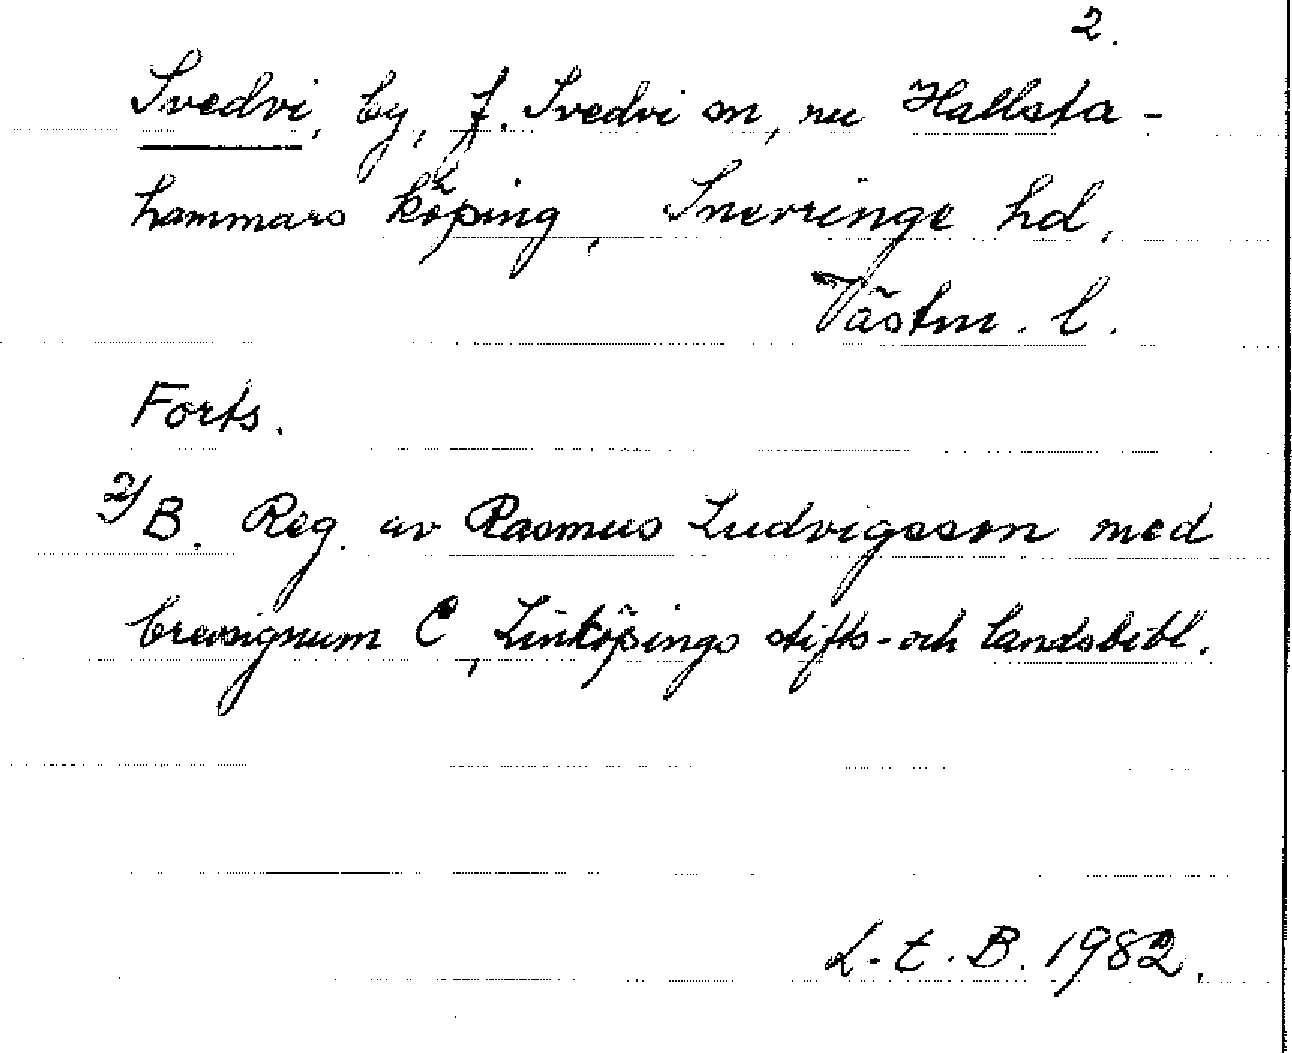 2.
Svedvi, by, f. Svedvi sn, nu Hallsta-
hammars köping, Snevringe hd,
Västm. l.
Forts.
2/ B. Reg. av Rasmus Ludvigsson med
brevsignum C, Linköpings stifts- och landsbibl.
L. E. B. 1982.